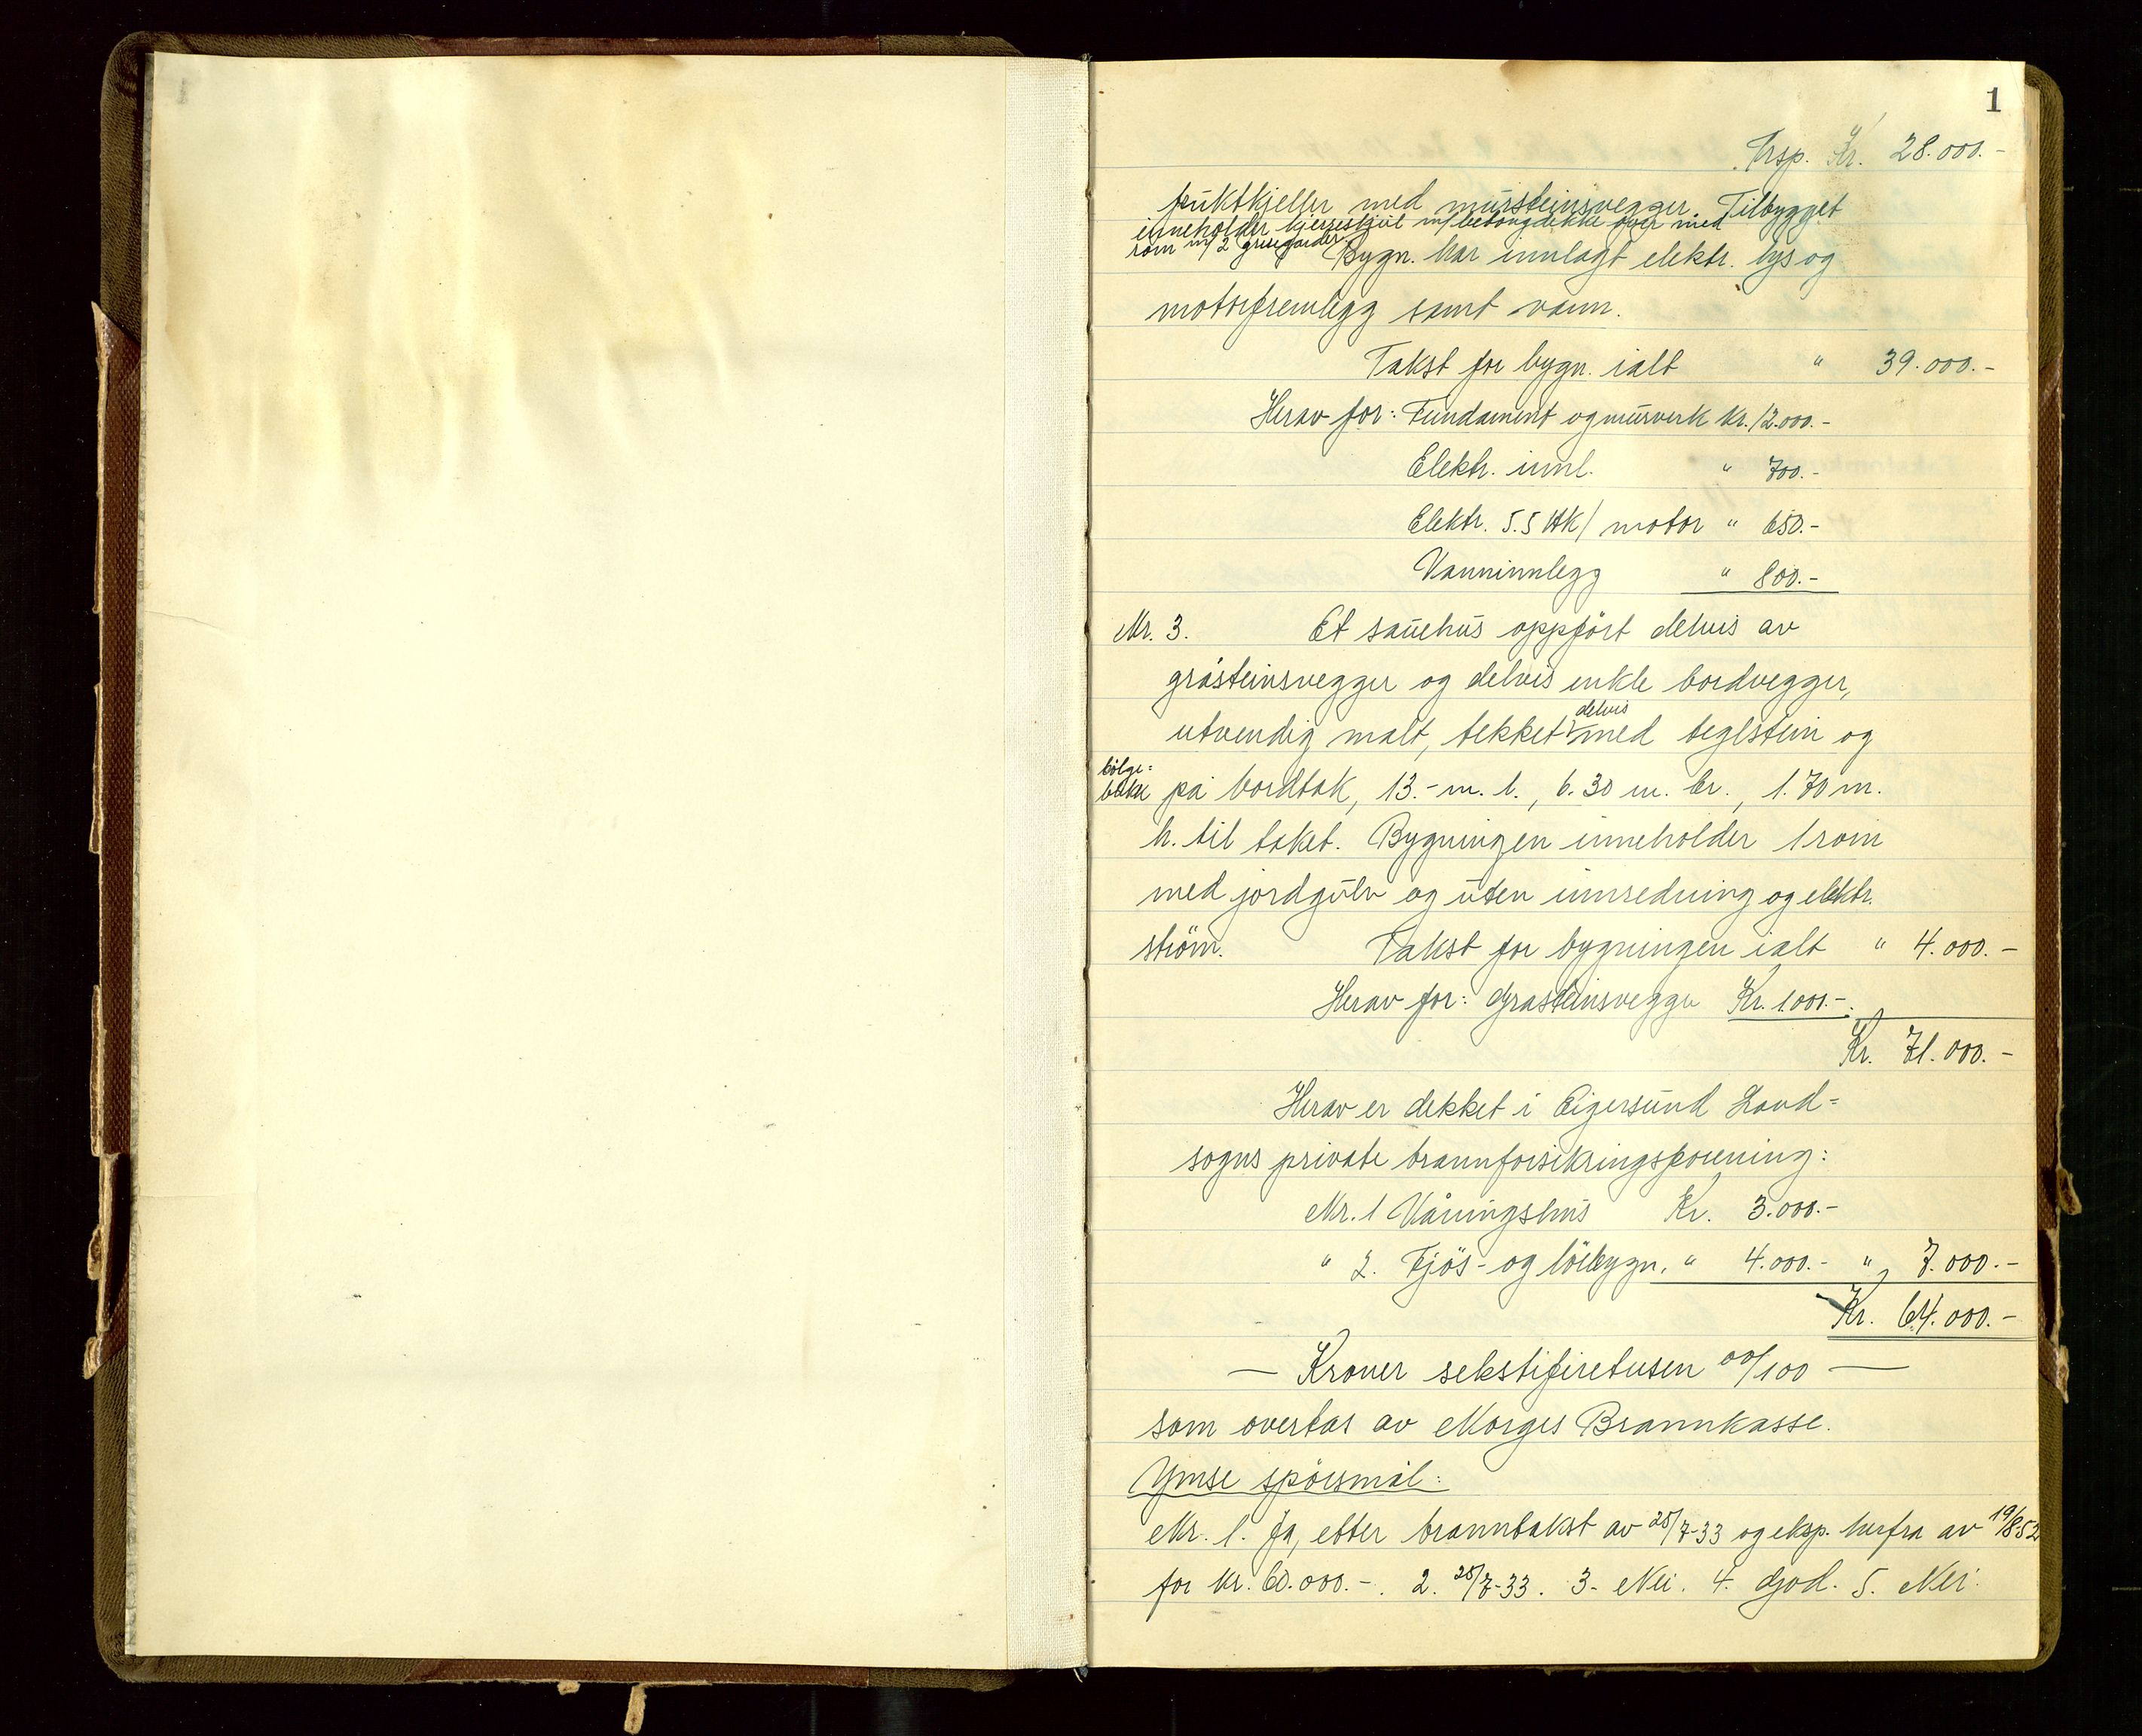 1
Trsp. Kr. 28.000.-
fruktkjeller med mursteinsvegger. Tilbygget
inneholder kjerreskjul m/betongdekke over med
rom m/2 grisegarder. Bygn. har innlagt elektr. lys og
motorfremlegg samt vann.
Takst for bygn. ialt " 39.000.-
Herav for: Fundament og murverk kr. 12.000.-
Elektr. innl. " 700.-
Elektr. 5.5 HK/ motor " 650.-
Vanninnlegg " 800.-
Nr. 3. Et sauehus oppført delvis av
gråsteinsvegger og delvis enkle bordvegger,
utvendig malt, tekket delvis med teglstein og
bølge=
blikk på bordtak, 13.- m. l., 6.30 m. br., 1.70 m.
h. til taket. Bygningen inneholder 1 rom
med jordgulv og uten innredning og elektr.
strøm. Takst for bygningen ialt " 4.000.-
Herav for: Gråsteinsvegger Kr. 1.000.-
Kr. 71.000.-
Herav er dekket i Eigersund Land=
sogns private brannforsikringsforening:
Nr. 1 Våningshus Kr. 3.000.-
" 2. Fjøs- og løebygn. " 4.000.- " 7.000.-
Kr. 64.000.-
— Kroner sekstifiretusen 00/100 —
som overtas av Norges Brannkasse.
Ymse spørsmål:
Nr. 1. Ja, etter branntakst av 25/7-33 og eksp. herfra av 19/8-52
for kr. 60.000.-. 2. 25/7-33. 3- Nei. 4. God. 5. Nei.